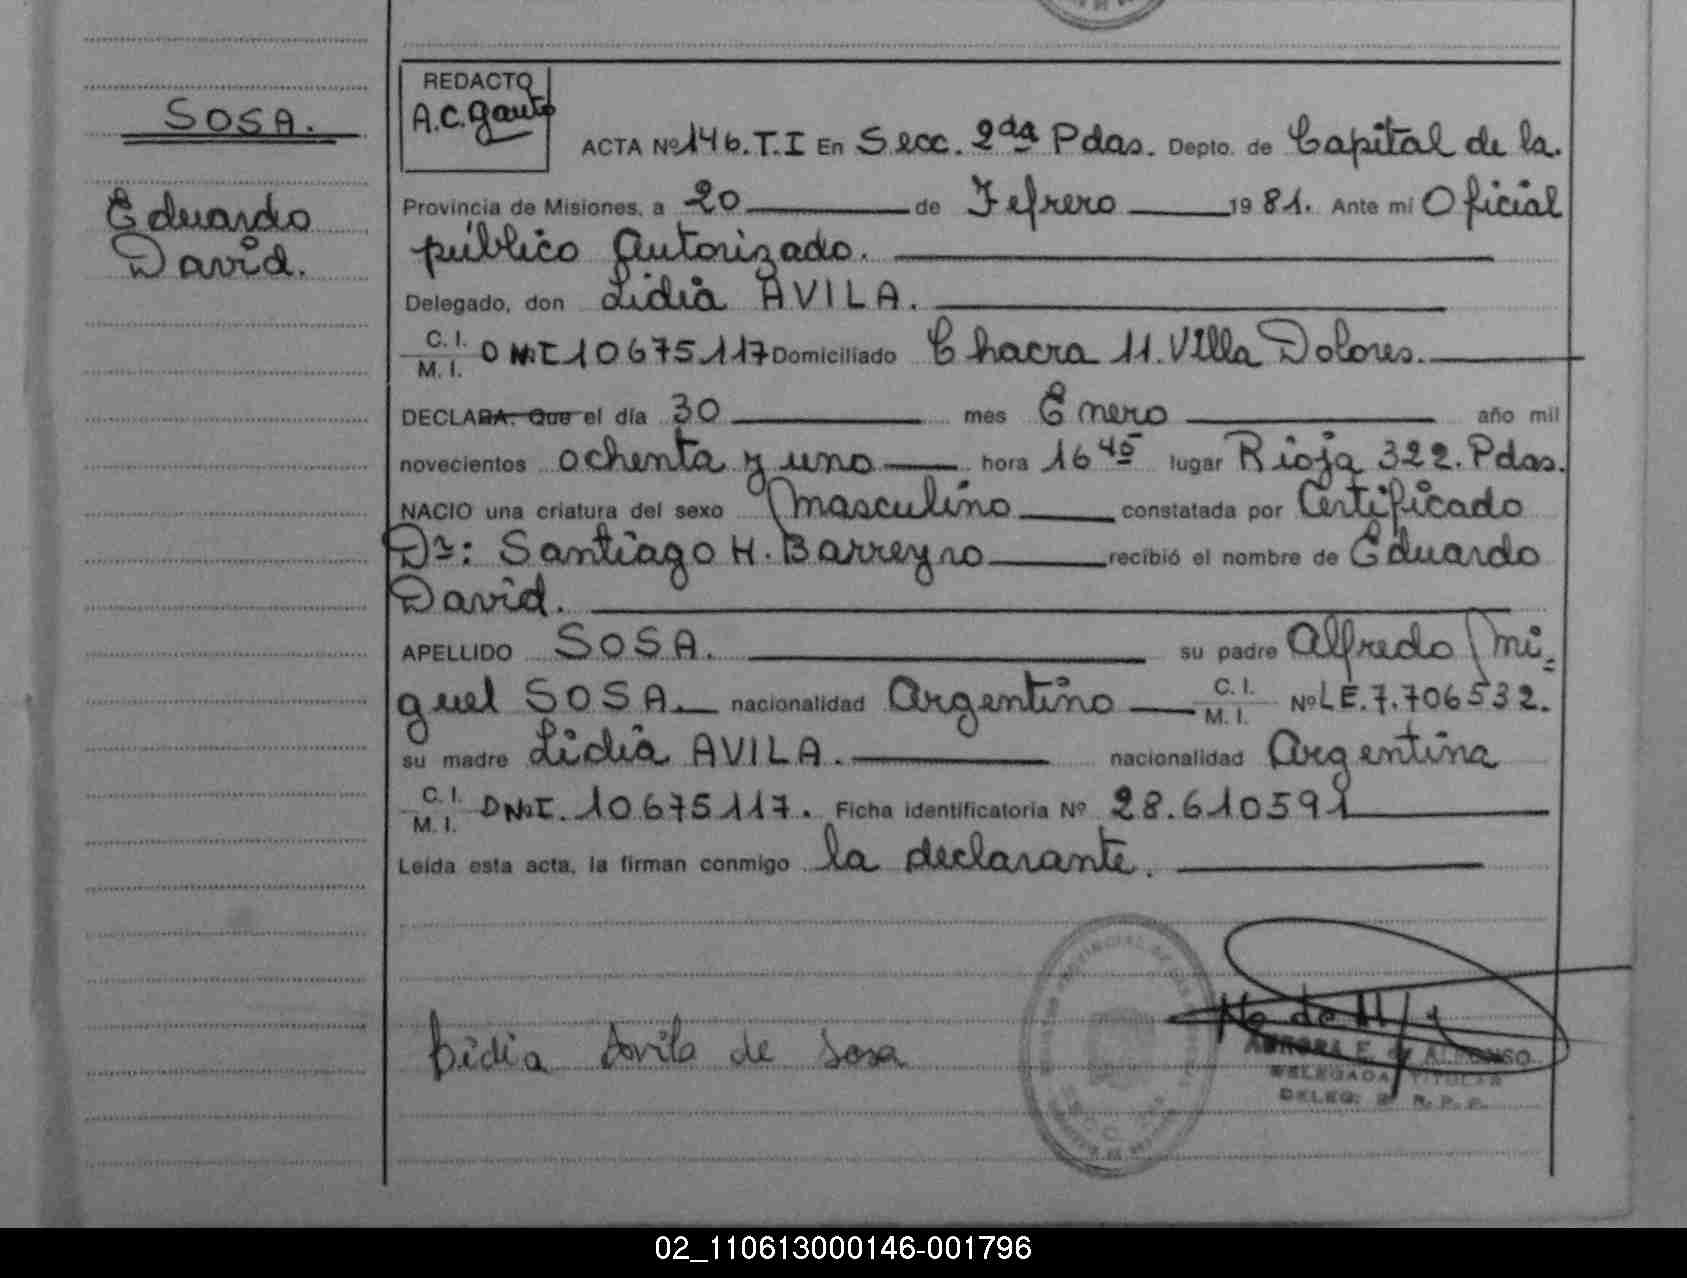 SOSA.
Eduardo
David.
REDACTO
A.C. Gauto
ACTA Nº 146. T. I En Secc. 2da Pdas. Depto. de Capital de la.
Provincia de Misiones, a 20 de Fefrero 1981. Ante mi Oficial
público Autorizado.
Delegado, don Lidia AVILA.
C. I.
M. I. DNI 10675117 Domiciliado Chacra 11. Villa Dolores.
DECLARA: Que el día 30 mes Enero año mil
novecientos ochenta y uno hora 16 45 lugar Rioja 322. Pdas.
NACIO una criatura del sexo Masculino constatada por Certificado
Dr: Santiago H. Barreyro recibió el nombre de Eduardo
David.
APELLIDO SOSA. su padre Alfredo Mi=
guel SOSA. nacionalidad Argentino C. I.
M. I. Nº LE. 7.706532.
su madre Lidia AVILA. nacionalidad Argentina
C. I.
M. I. DNI. 10675117. Ficha identificatoria Nº 28.610591
Leída esta acta, la firman conmigo la declarante.
Lidia Avila de Sosa
AURORA E. de ALFONSO
DELEGADA TITULAR
DELEG. 2ª R. P. P.
02_110613000146-001796